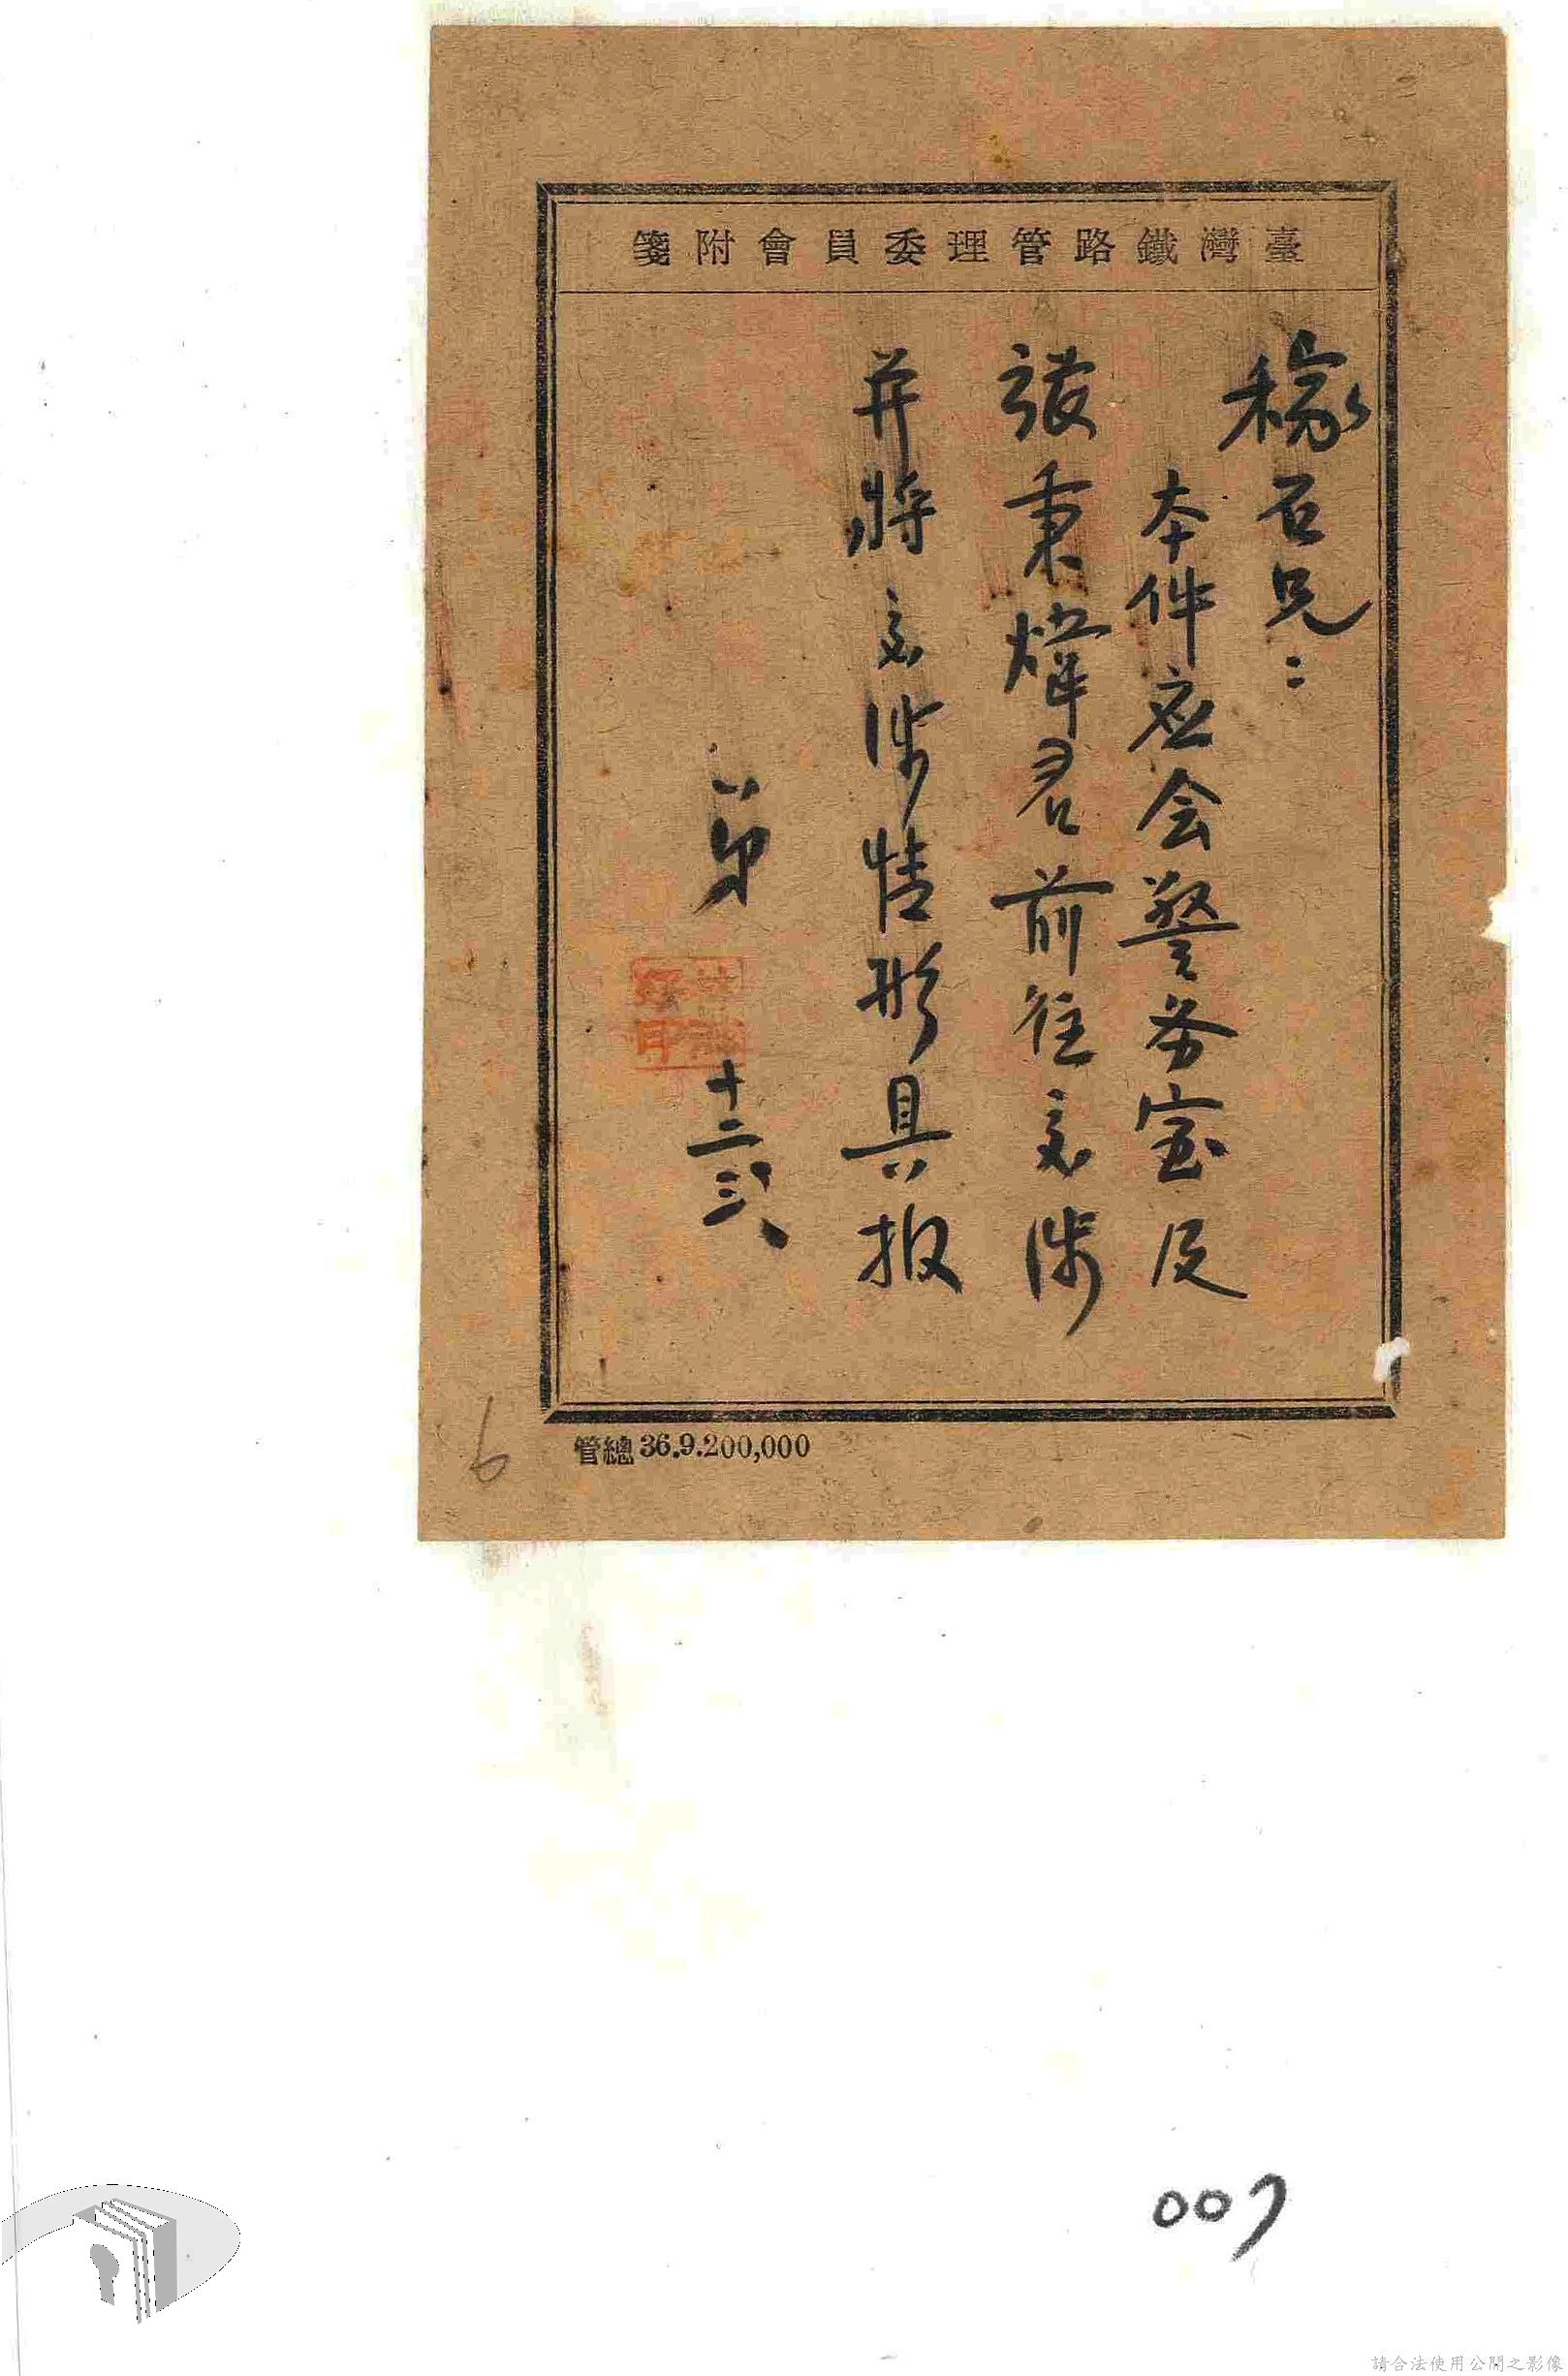 臺灣鐵路管理委員會附箋
稼石兄：
本件应会警务室及
張秉煒君前往交涉
并将交涉情形具报
弟
十二、三八
管總36.9.200,000
6
007
請合法使用公開之影像